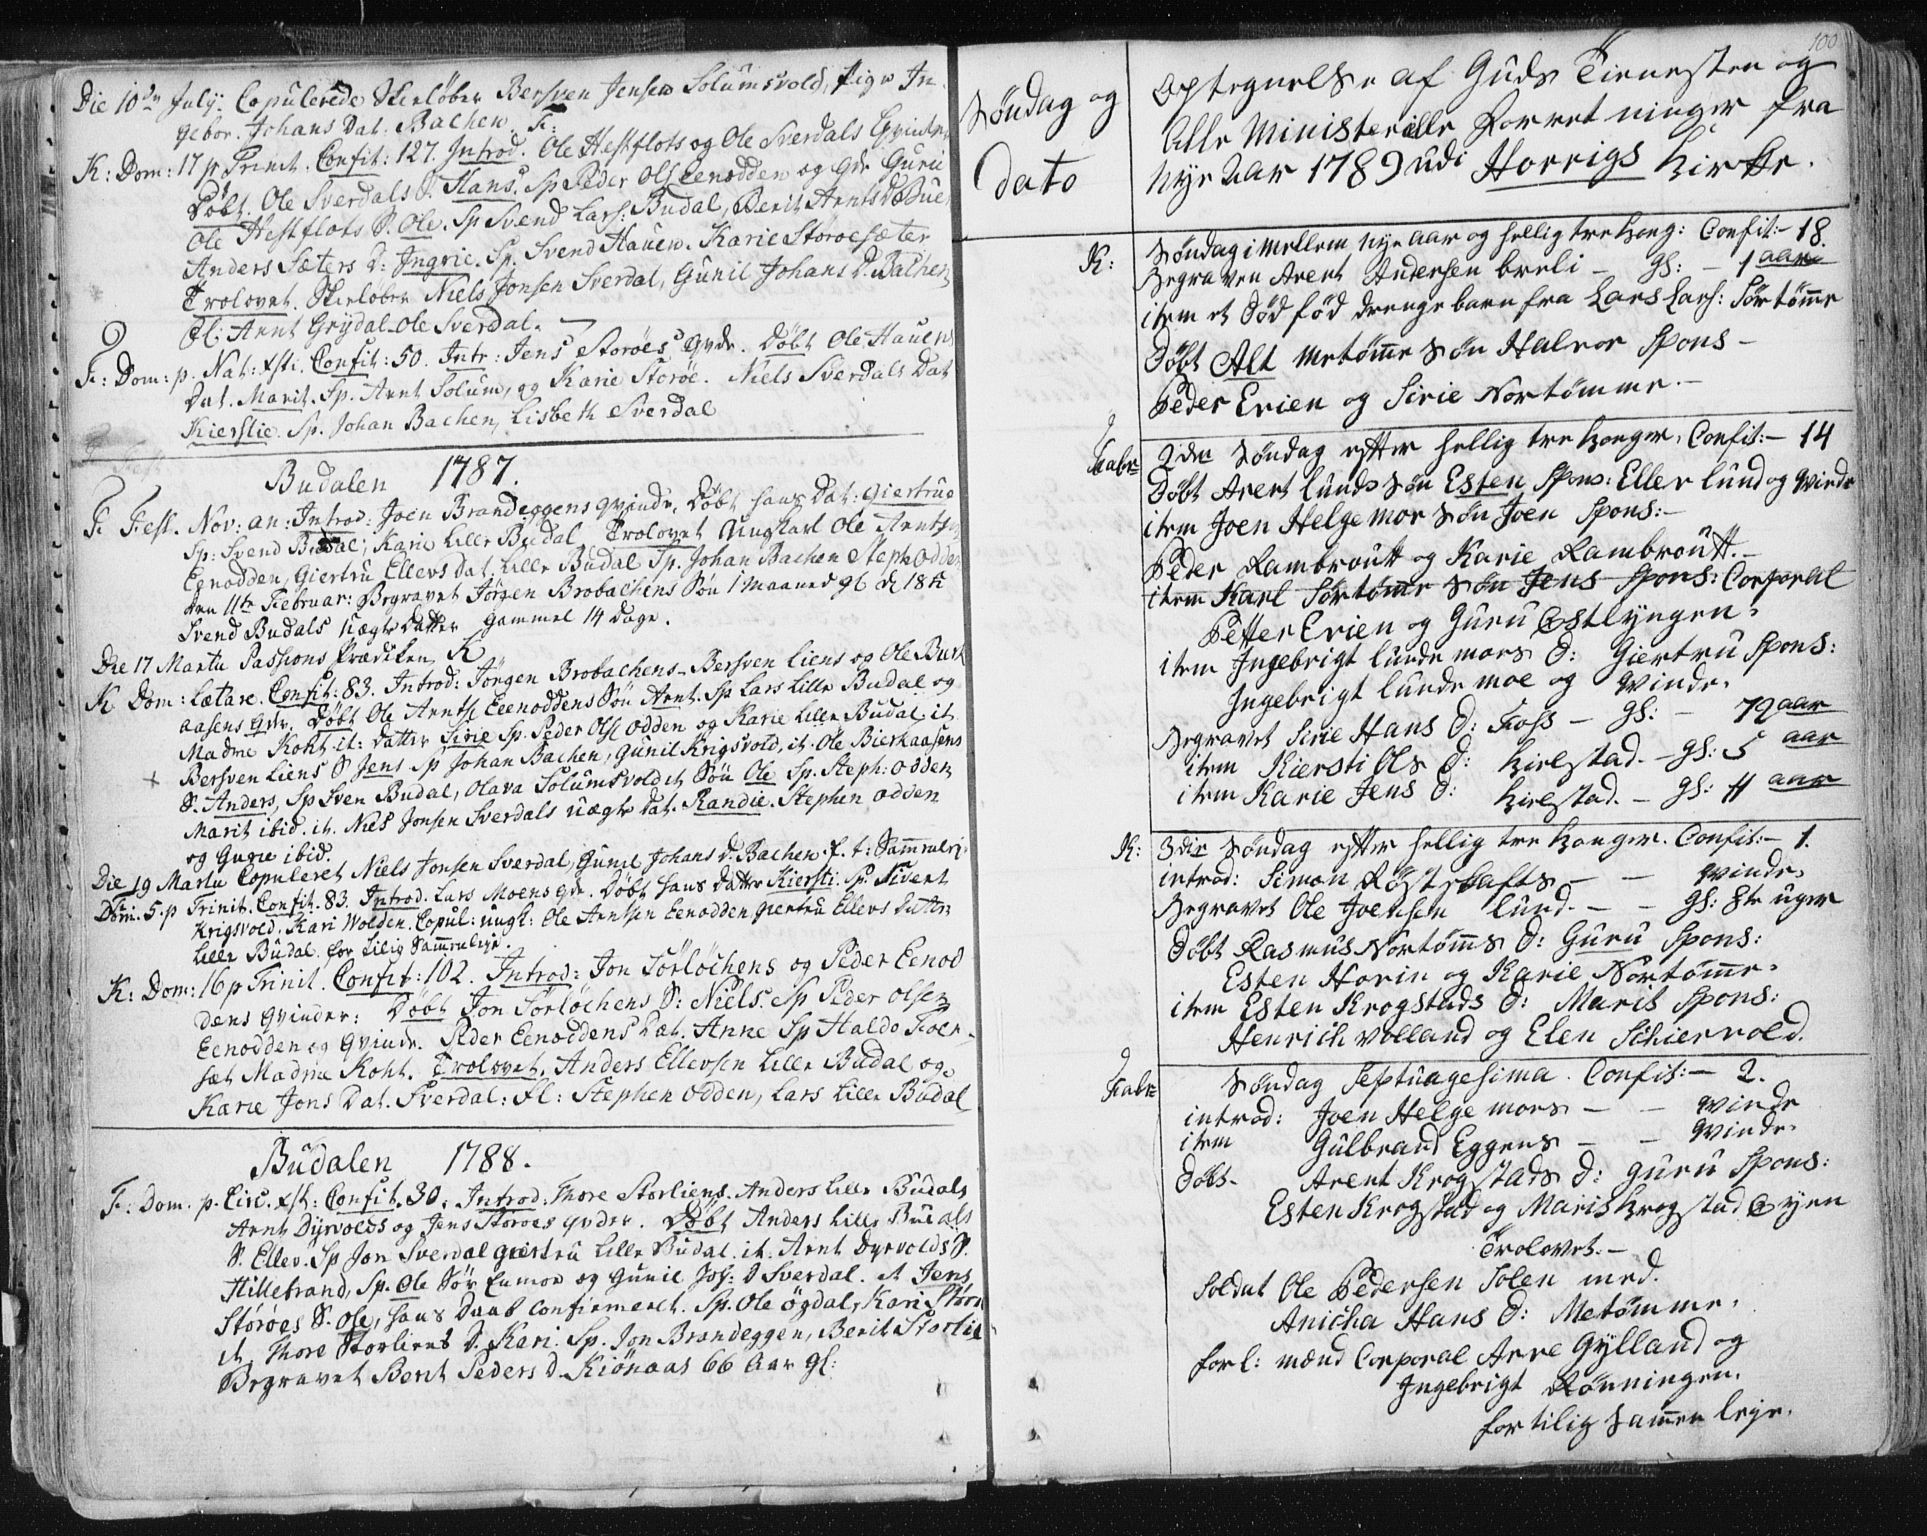 Die 10de July. Copulerede Skiløber Bersven Jensen Solumsvold, Pige In-
gebor. Johans Dat. Bachen F:
K: Dom: 17 p Trinit. Confit: 127. Introd. Ole Hestflots og Ole Sverdals Qvinder
Døbt. Ole Sverdals S. Hans. Sp Peder Ols Eenodden og Qde Guru
Ole Hestflots S. Ole. Sp Svend Lars: Budal, Berit Arnts D Bue
Anders Sæters D: Ingrie. Sp. Svend Hauen. Karie Storoesæter
Trolovet. Skiløber Niels Jonsen Sverdal, Gunil Johans D. Bachen
Fl: Arnt Grydal Ole Sverdal.
F: Dom: p. Nat: Xsti. Confit: 50. Intr: Jens Storøes Qvde. Døbt Ole Hauens
Dat. Marit. Sp. Arnt Solum, og Karie Storøe. Niels Sverdals Dat
Kierstie. Sp. Johan Bachen, Lisbeth Sverdal
Budalen 1787.
F. Fest. Nov: an: Introd: Joen Brandeggens Qvinde, Døbt hans Dat: Giertrue
Sp: Svend Budal, Karie Lille Budal. Trolovet Ungkarl Ole Arntsen
Eenodden, Giertru Ellevs Dat. Lille Budal Sp. Johan Bachen Steph Odden
den 11te Februar: Begravet Jörgen Brobachens Søn 1 Maaned gl d 18 K
Svend Budals Uægte Datter gammel 14 Dage.
Die 17 Martii Passions Prædiken K
K Dom: Lætare. Confit: 83. Introd: Jörgen Brobachens - Bersven Liens og Ole Burk
aasens Qvdr. Døbt Ole Arntss Eenoddens Søn Arnt. Sp Lars Lille Budal og
Madme Koht it: Datter Sirie Sp. Peder Ols Odden og Karie Lille Budal. it
Bersven Liens S Jens Sp Johan Bachen, Gunil Krigsvold, it. Ole Bierkaasens
S. Anders, Sp Sven Budal, Olava Solumsvold it Søn Ole Sp. Steph: Odden
Marit ibid. it. Niels Jonsen Sverdals uægte Dat. Randie. Stephen Odden
og Gurie ibid.
Die 19 Martii Copuleret Niels Jonsen Sverdal, Gunil Johans D. Bachen f. t: Samleie
Dom. 5. p Trinit. Confit. 83. Introd. Lars Moens Qde. Døbt hans Datter Kiersti. Sp. Sivert
Krigsvold. Kari Wolden. Copul: ungk: Ole Arntsen Eenodden Giertru Ellevs Datter
Lille Budal. for tilig Sammenleje.
K: Dom: 16 p Trinit. Confit: 102. Introd: Jon Sörløchens og Peder Eenod
dens Qvinder: Døbt Jon Sörløchens S: Niels. Sp Peder Olsen
Eenodden og Qvinde. Peder Eenoddens Dat. Anne Sp Haldo Foer-
sæt Madme Koht. Trolovet. Anders Ellevsen Lille Budal og
Karie Jons Dat. Sverdal: Fl: Stephen Odden, Lars Lille Budal
Budalen 1788.
F: Dom. p. Circ. Xst: Confit. 30. Introd: Thore Storliens. Anders Lille Budals
Arnt Dyrvolds og Jens Storoes Qvder. Døbt Anders Lille Budals
S. Ellev. Sp Jon Sverdal Giertru Lille Budal. it. Arnt Dyrvolds S.
Hillebrand, Sp. Ole Sör Enmoe og Gunil Jos: D Sverdal. it Jens
Störöes S. Ole, hans Daab confirmeret. Sp. Ole Øgdal, Kari Storø
it Thore Storliens D. Kari. Sp. Jon Brandeggen, Berit Storlie
Begravet Berit Peders D. Kiönaas 66 Aar gl:
100
Søndag og
Dato
Optegnelse af Guds Tienesten og
Alle Ministerielle Forretninger fra
Nye Aar 1789 udi Horrigs Kirke.
K: Søndag imellem Nye Aar og hellig tre Kong: Confit:- 18.
Begraven Arent Andersen breli - gl: - 1 aar
item et Død fød drenge barn fra Lars Lars: Sørtømme
Døbt Alt Metømme Søn Halvor Spons -
Peder Erien og Sirie Nortømme.-
Fabr 2den Søndag efter hellig tre Konger. Confit:- 14
Døbt Arent Lunds Søn Esten Spons: Eller Lund og Qvinde
item Joen Helgemor Søn Joen Spons:-
Peder Rambroutt og Karie Rambroutt.-
item Karl Sørtømme Søn Jens Spons: Corporal
Petter Erien og Guru Østlyngen.
item Ingebrigt Lundemors D: Giertru Spons:
Ingebrigt Lundemoe og Qvinde.
Begravet Sirie Hans D: Foss - gl: - 72 aar
item Kiersti Ols D: Kielstad. - gl: 5 aar
item Karie Jens D: Kielstad. - gl: 11 aar
K: 3die Søndag efter hellig tre Konger. Confit:- 1.
introd: Simon Röstskafts - - Qvinde.
Begravet Ole Joensen Lund. - - gl: 8te uger
Døbt Rasmus Nortømms D: Guru Spons:
Esten Horin og Karie Nortømme.
item Esten Krogstads D: Marit Spons:
Henrich Volland og Elen Schiervold.
Fabr Søndag Septuagesima. Confit:- 2.
introd: Joen Helgemors - - Qvinde
item Gulbrand Eggens - - Qvinde.
Døbt- Arent Krogstads D: Guru Spons:
Esten Krogstad og Marit Krogstad Øyen
Trolovet.-
Soldat Ole Pedersen Solen med.
Anicha Hans D: Metømme.
forl: mænd Corporal Arne Gylland og
Ingebrigt Rönningen.
for tilig Sammen leje.